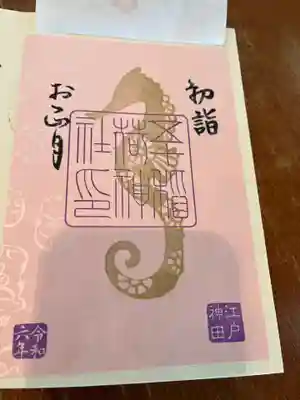 初詣
五十稲
荷神
社印
お正月
江戸
神田
令和
六年